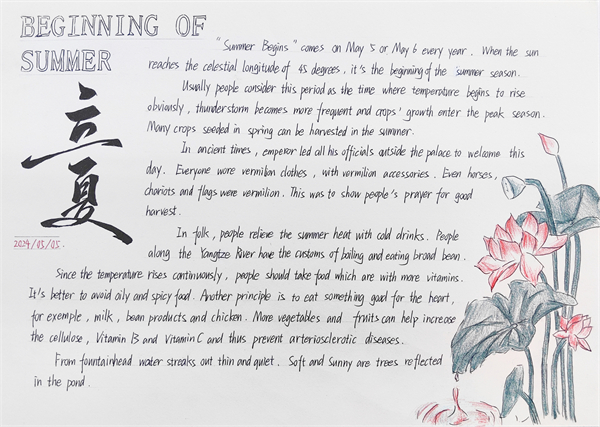 BEGINNING OF
SUMMER
立夏
2024/05/05.
"Summer Begins" comes on May 5 or May 6 every year. When the sun
reaches the celestial longitude of 45 degrees, it's the beginning of the summer season.
Usually people consider this period as the time where temperature begins to rise
obviously, thunderstorm becomes more frequent and crops' growth enter the peak season.
Many crops seeded in spring can be harvested in the summer.
In ancient times, emperor led all his officials outside the palace to welcome this
day. Everyone wore vermilion clothes, with vermilion accessories. Even horses,
chariots and flags were vermilion. This was to show people's prayer for good
harvest.
In folk, people relieve the summer heat with cold drinks. People
along the Yangtze River have the customs of boiling and eating broad bean.
Since the temperature rises continuously, people should take food which are with more vitamins.
It's better to avoid oily and spicy food. Another principle is to eat something good for the heart,
for exemple, milk, bean products and chicken. More vegetables and fruits can help increase
the cellulose, Vitamin B and Vitamin C and thus prevent arteriosclerotic diseases.
From fountainhead water streaks out thin and quiet. Soft and Sunny are trees reflected
in the pond.